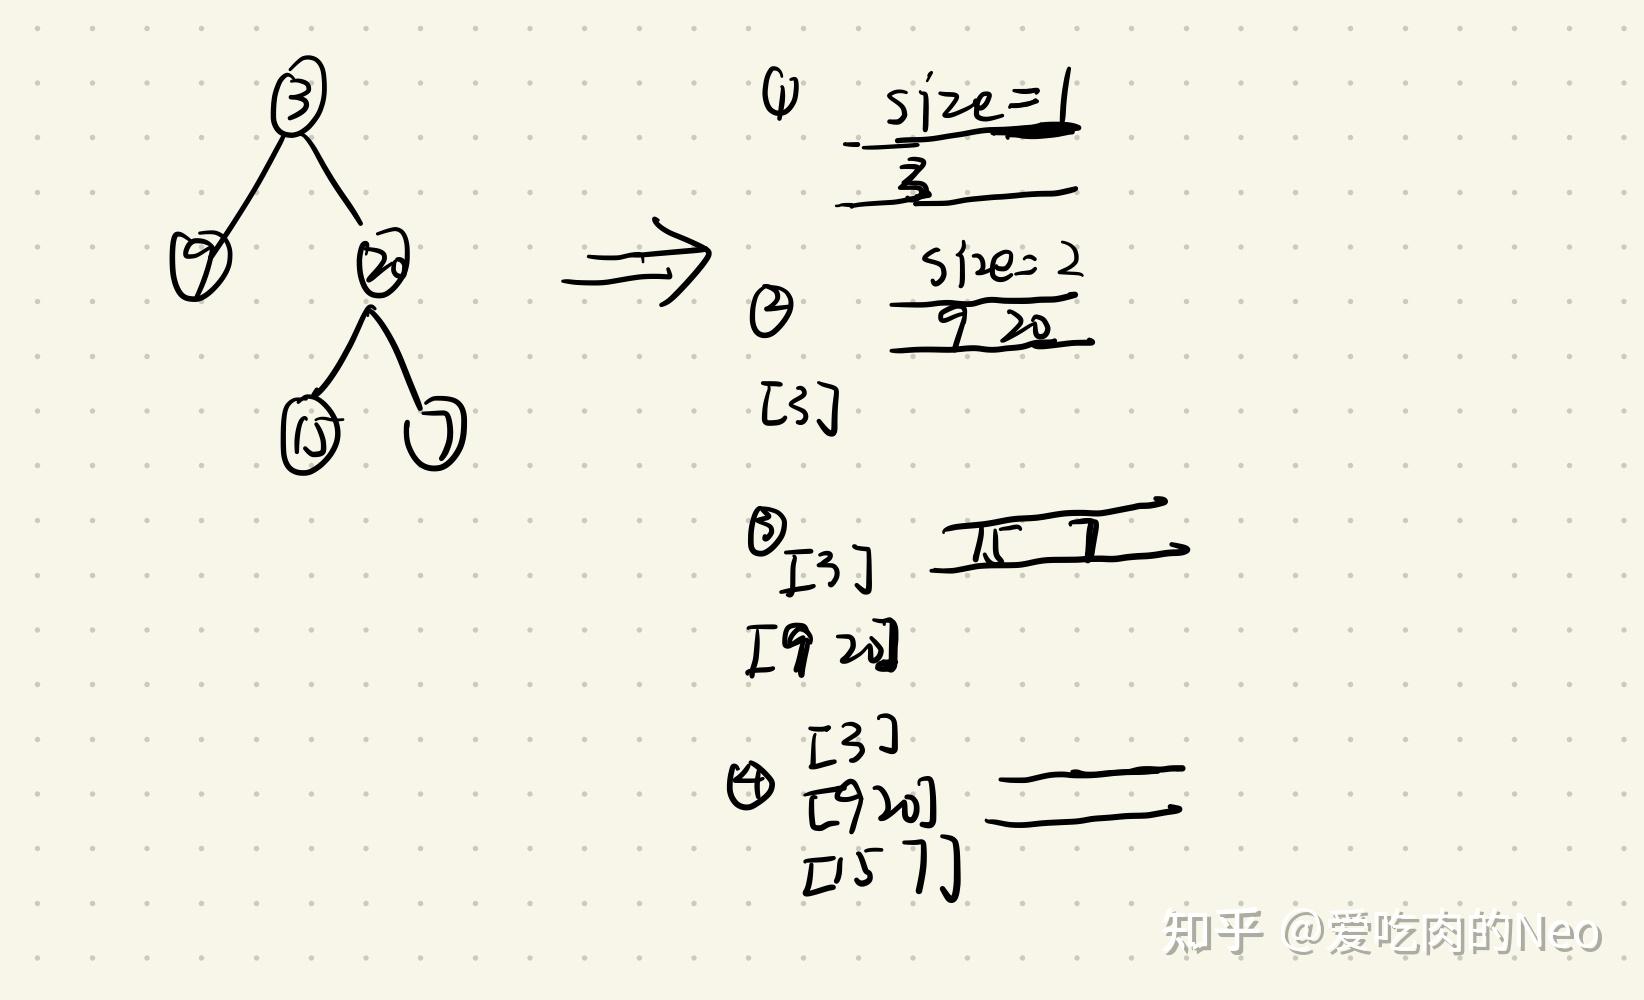 3
9 20
15 7
① size=1
3
size=2
②
9 20
[3]
③
[3]
15 7
[9 20]
[3]
④
[9 20]
[15 7]
知乎 @爱吃肉的Neo